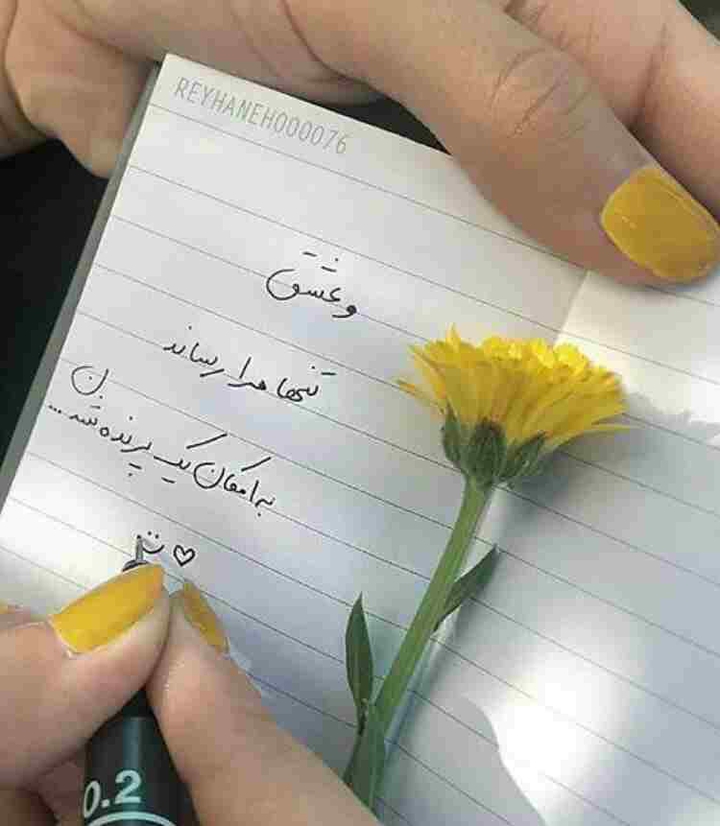 REYHANEH000076
و عشق
تنها مرا رساند
به امکان یک پرنده شدن...
0.2